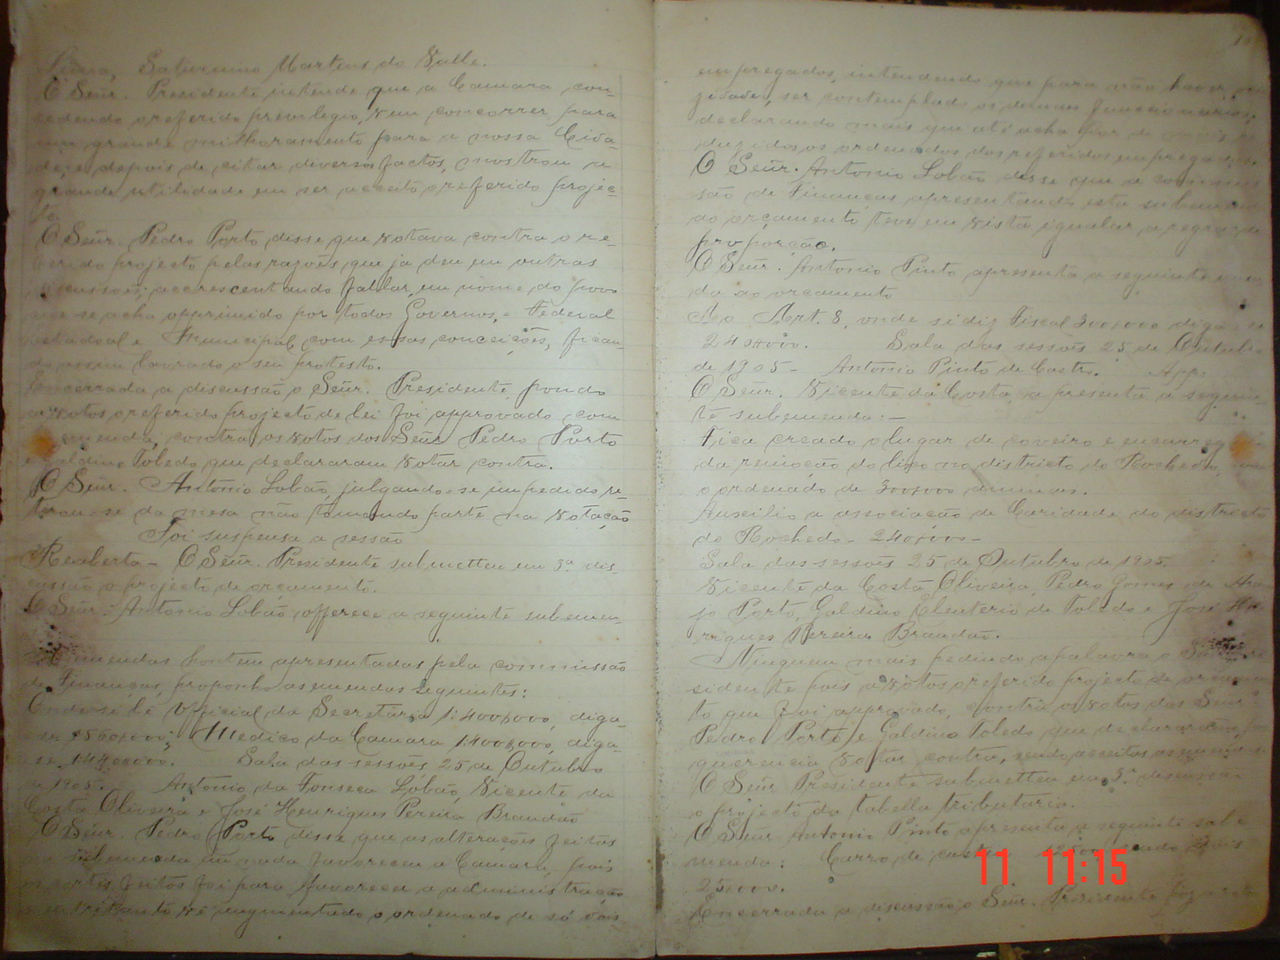 Saturnino Martins do Valle.
O Señr. Presidente intende que a Camara con-
cedendo o referido previlegio, vem concorrer para
um grande milhoramento para a nossa Cida-
de, e depois de citar diversos factos, mostrou a
grande utilidade em ser acceito o referido projec-
to.
O Señr. Pedro Porto disse que votava contra o re-
ferido projecto pelas razões que ja deu em outras
discussões; accrescentando fallar em nome do povo
que se acha opprimido por todos Governos, Federal
Estadoal e Municipal com essas conceições, fican-
do assim lavrado o seu protesto.
Encerrada a discussão o Señr. Presidente pondo
a votos o referido projecto de lei foi approvado com
emenda, contra os votos dos Señr Pedro Porto
e Galdino Toledo que declararam votar contra.
O Señr. Antonio Lobão, julgando-se impedido re-
tirou-se da mesa não tomando parte na votação
Foi suspensa a sessão
Reaberta - O Señr. Presidente submetteu em 3ª dis-
cussão o projecto de orçamento.
O Señr. Antonio Lobão offerece a seguinte subemen-
emendas hontem apresentadas pela commissão
de Finanças, proponho as emendas seguintes:
Onde se lê Official da Secretaria 1:400$000, diga-
se 1:560$000; Medico da Camara 1:400$000, diga-
se 1:440$000. Sala das sessões 25 de Outubro
de 1905. Antonio da Fonseca Lobão, Vicente da
Costa Oliveira e José Henriques Pereira Brandão
O Señr. Pedro Porto disse que as alterações feitas
na subemenda em nada favorecem a Camara, pois
os cortes feitos foi para favorecer a administração
augmentado o ordenado de só dois
empregados, intendendo que para não haver
ser contemplado os demais funccionarios;
declarando mais que até acha
os ordenados dos referidos empregados.
O Señr. Antonio Lobão disse que a commis-
são de Finanças apresentando esta subemenda
ao orçamento teve em vista igualar a regra da
proporção.
O Señr. Antonio Pinto apresenta a seguinte emen-
da ao orçamento
Ao Art. 8, onde se diz Fiscal 300$000 diga-se
240$000. Sala das sessões 25 de Outubro
de 1905 - Antonio Pinto de Castro. App.
O Señr. Vicente da Costa apresenta a seguin-
te subemenda: -
Fica creado o lugar de coveiro e encarrega-
do da remoção do lixo no districto do Rochedo, com
o ordenado de 300$000 annuaes.
Auxilio a associação de Caridade do districto
do Rochedo - 240$000 -
Sala das sessões 25 de Outubro de 1905.
Vicente da Costa Oliveira, Pedro Gomes de Arau-
jo Porto, Galdino Eleuterio de Toledo e José Hen-
riques Pereira Brandão.
Ninguem mais pedindo a palavra o Señr Pre-
sidente pois a votos o referido projecto de orçamen-
to que foi approvado, contra os votos dos Señr
Pedro Porto e Galdino Toledo que declararam
votar contra, sendo acceitas as emendas.
O Señr Presidente submetteu em 3ª discussão
o projecto da tabella tributaria.
O Señr Antonio Pinto apresenta a seguinte sube-
menda: Carro de
25$000.
Encerrada a discussão o Señr. Presidente
11 11:15